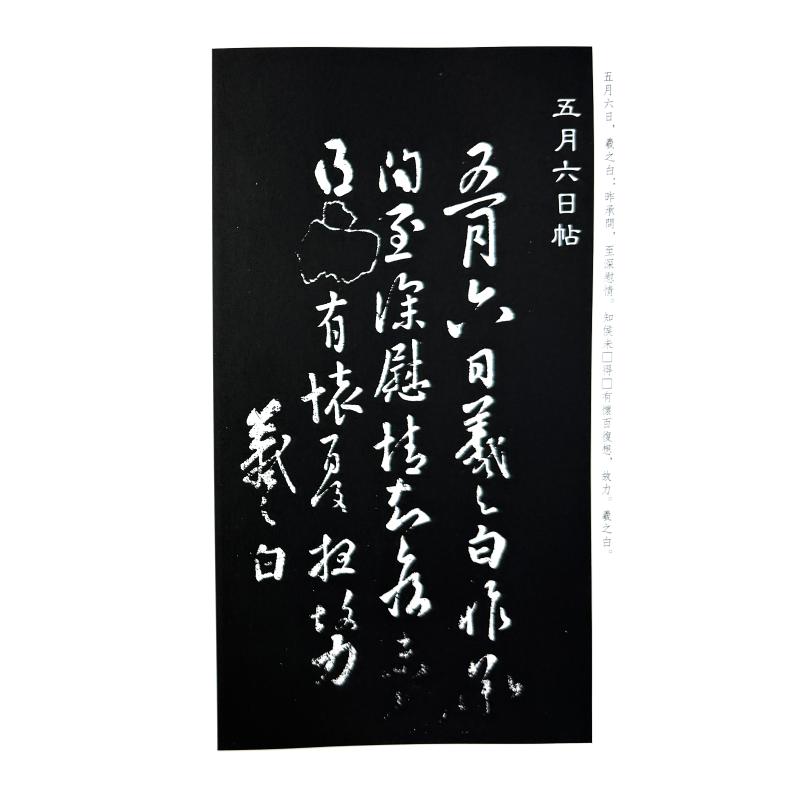 五月六日，羲之白：昨承問，至深慰情。知侯未□得□有懷百復想，致力。羲之白。
五月六日帖
五月六日羲之白昨承
問至深慰情知侯未
得有懷百復想致力
羲之白